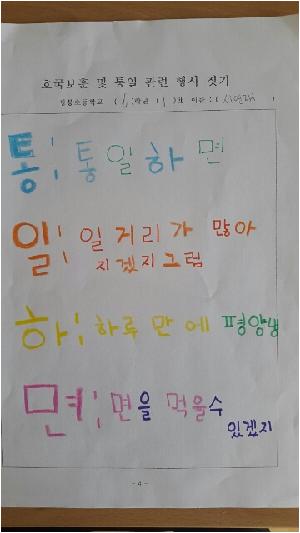 호국보훈 및 통일 관련 행시 짓기
초등학교 ( 학년 )반 이름 : (
통; 통일하면
일; 일거리가 많아
지겠지그럼
하; 하루만에 평양냉
면; 면을 먹을수
있겠지
- 4 -